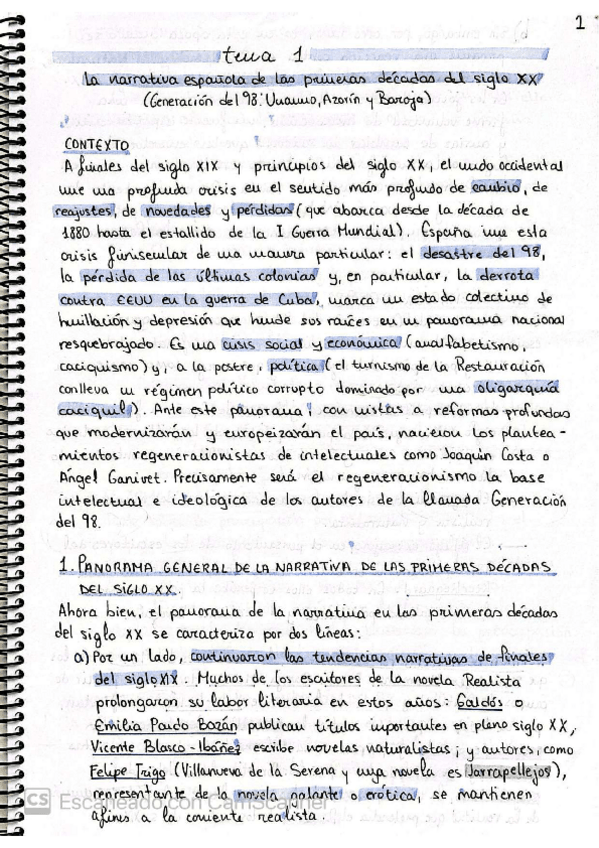 1
tema 1
La narrativa española de las primeras décadas del siglo XX
(Generación del 98: Unamuno, Azorín y Baroja)
CONTEXTO
A finales del siglo XIX y principios del siglo XX, el mundo occidental
vive una profunda crisis en el sentido más profundo de cambio, de
reajustes, de novedades y pérdidas (que abarca desde la década de
1880 hasta el estallido de la I Guerra Mundial). España vive esta
crisis finisecular de una manera particular: el desastre del 98,
la pérdida de las últimas colonias y, en particular, la derrota
contra EEUU en la guerra de Cuba, marca un estado colectivo de
humillación y depresión que hunde sus raíces en un panorama nacional
resquebrajado. Es una crisis social y económica (analfabetismo,
caciquismo) y, a la postre, política (el turnismo de la Restauración
conlleva un régimen político corrupto dominado por una oligarquía
caciquil). Ante este panorama, con vistas a reformas profundas
que modernizarán y europeizarán el país, nacieron los plantea-
mientos regeneracionistas de intelectuales como Joaquín Costa o
Ángel Ganivet. Precisamente será el regeneracionismo la base
intelectual e ideológica de los autores de la llamada Generación
del 98.
1. PANORAMA GENERAL DE LA NARRATIVA DE LAS PRIMERAS DÉCADAS
DEL SIGLO XX.
Ahora bien, el panorama de la narrativa en las primeras décadas
del siglo XX se caracteriza por dos líneas:
a) Por un lado, continuaron las tendencias narrativas de finales
del siglo XIX. Muchos de los escritores de la novela Realista
prolongaron su labor literaria en estos años: Galdós
Emilia Pardo Bazán publican títulos importantes en pleno siglo XX,
Vicente Blasco-Ibáñez escribe novelas naturalistas; y autores, como
Felipe Trigo (Villanueva de la Serena y cuya novela es Jarrapellejos),
representante de la novela galante o erótica, se mantienen
afines a la corriente realista
CS Escaneado con CamScanner